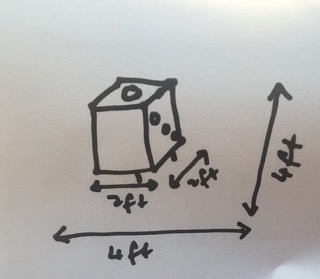 2ft
2ft
4ft
4ft